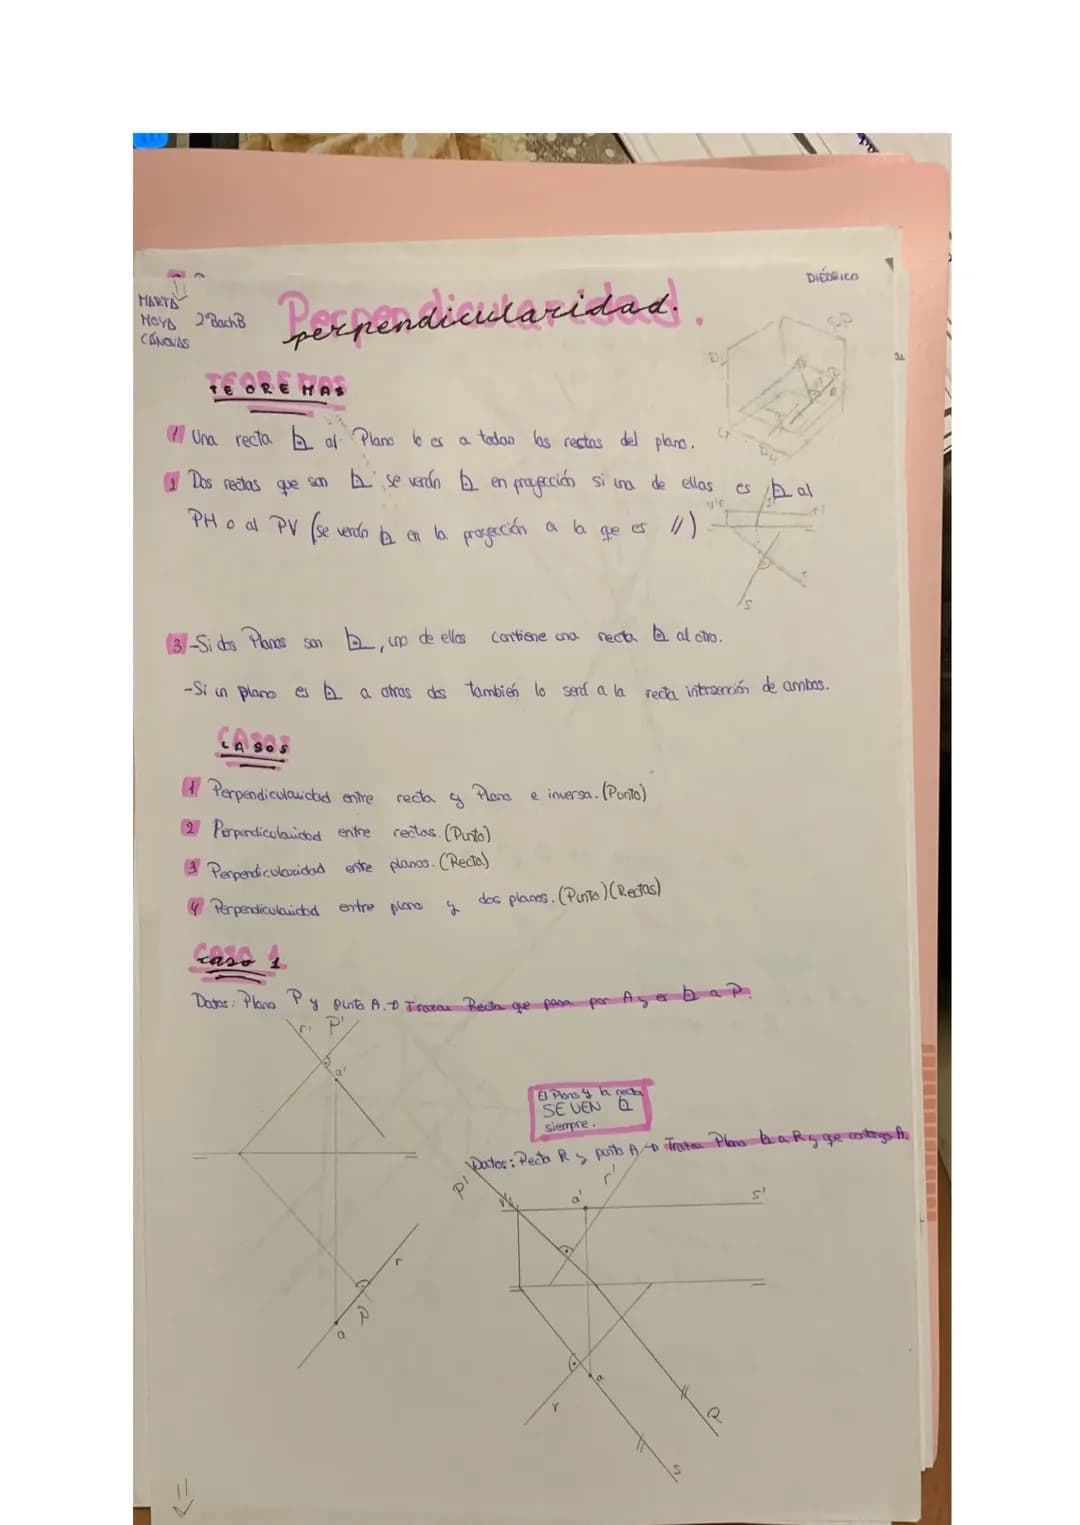 DIÉDRICO
MARTA
MOYA 2ºBachB
CÁNOVAS
Perpendicularidad.
perpendicularidad.
TEOREMAS
1 Una recta ⊥ al Plano lo es a todas las rectas del plano.
2 Dos rectas que son ⊥ se verán ⊥ en proyección si una de ellas es ⊥ al
PH o al PV (se verán ⊥ en la proyección a la que es //)
v'r
r'
s
3 -Si dos Planos son ⊥, uno de ellos contiene una recta ⊥ al otro.
-Si un plano es ⊥ a otras dos también lo será a la recta intersección de ambos.
CASOS
1 Perpendicularidad entre recta y Plano e inversa. (Punto)
2 Perpendicularidad entre rectas. (Punto)
3 Perpendicularidad entre planos. (Recta)
4 Perpendicularidad entre plano y dos planos. (Punto) (Rectas)
CASO 1
caso 1
Datos: Plano P y punto A. → Trazar Recta que pasa por A y es ⊥ a P.
r' P'
a'
r
P
a
El Plano y la recta
SE VEN ⊥
siempre.
Datos: Recta R y punto A → Trazar Plano ⊥ a R y que contenga A.
P'
r'
a'
s'
a
r
P
s